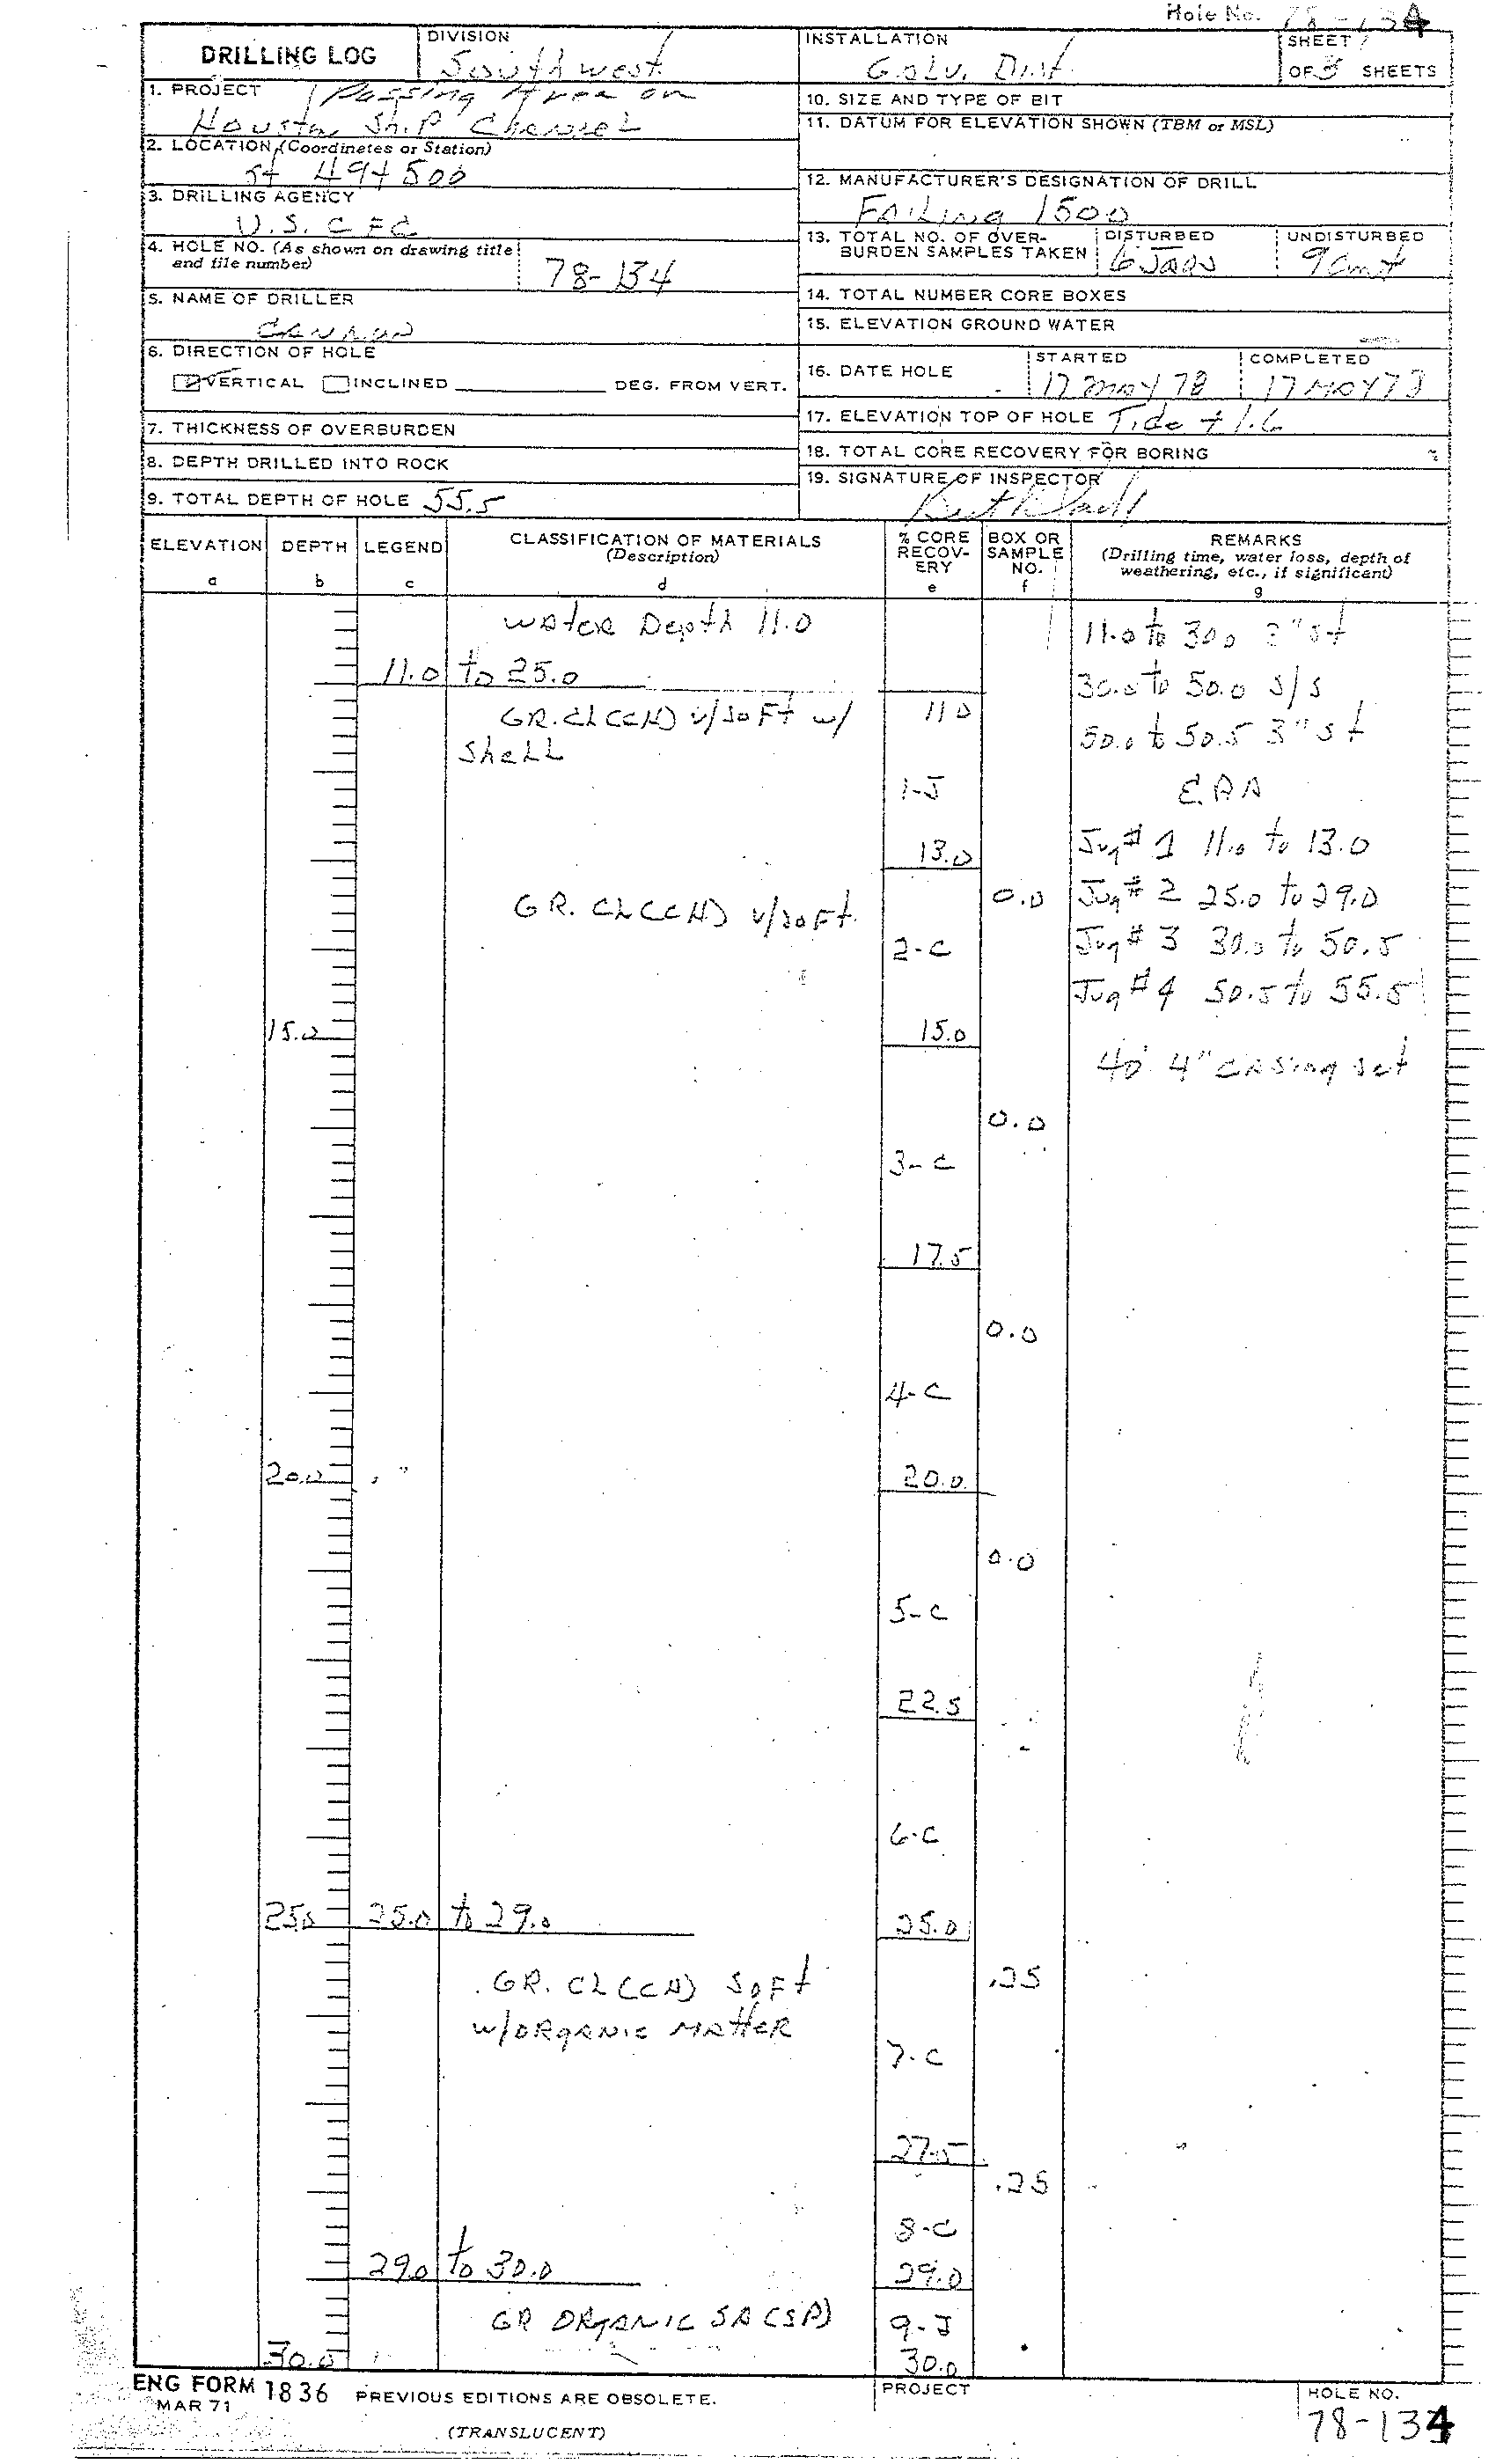 Hole No. 78-134
DRILLING LOG
DIVISION
Southwest
INSTALLATION
Galv. Dist.
SHEET 1
OF 3 SHEETS
1. PROJECT Passing Area on
Houston Ship Channel
2. LOCATION (Coordinates or Station)
St 49+500
3. DRILLING AGENCY
U.S. C E C
4. HOLE NO. (As shown on drawing title
and file number)
78-134
5. NAME OF DRILLER
6. DIRECTION OF HOLE
VERTICAL INCLINED DEG. FROM VERT.
7. THICKNESS OF OVERBURDEN
8. DEPTH DRILLED INTO ROCK
9. TOTAL DEPTH OF HOLE 55.5
10. SIZE AND TYPE OF BIT
11. DATUM FOR ELEVATION SHOWN (TBM or MSL)
12. MANUFACTURER'S DESIGNATION OF DRILL
Failing 1500
13. TOTAL NO. OF OVER-
BURDEN SAMPLES TAKEN
DISTURBED
6 Jars
UNDISTURBED
9 Cmt
14. TOTAL NUMBER CORE BOXES
15. ELEVATION GROUND WATER
16. DATE HOLE
STARTED
17 May 78
COMPLETED
17 MAY 78
17. ELEVATION TOP OF HOLE Tide + 1.6
18. TOTAL CORE RECOVERY FOR BORING %
19. SIGNATURE OF INSPECTOR
ELEVATION
a
DEPTH
b
LEGEND
c
CLASSIFICATION OF MATERIALS
(Description)
d
% CORE
RECOV-
ERY
e
BOX OR
SAMPLE
NO.
f
REMARKS
(Drilling time, water loss, depth of
weathering, etc., if significant)
g
Water Depth 11.0
11.0 to 25.0
GR. CL (CH) v/soft w/
Shell
11.0
1-J
13.0
11.0 to 30.0 3" st
30.0 to 50.0 s/s
50.0 to 50.5 3" st
E.P.A
Jug # 1 11.0 to 13.0
Jug # 2 25.0 to 29.0
Jug # 3 30.0 to 50.5
Jug # 4 50.5 to 55.5
40' 4" casing set
GR. CL (CH) v/soft.
0.0
2-C
15.0
15.0
0.0
3-C
17.5
0.0
4-C
20.0
20.0
0.0
5-C
22.5
6-C
25.0
25.0 to 29.0
25.0
GR. CL (CH) SOFT
w/ORGANIC MATTER
.25
7-C
27.5
.25
8-C
29.0 to 30.0
29.0
GR ORGANIC SA (SP)
9-J
30.0
30.0
ENG FORM 1836
MAR 71
PREVIOUS EDITIONS ARE OBSOLETE.
(TRANSLUCENT)
PROJECT
HOLE NO.
78-134